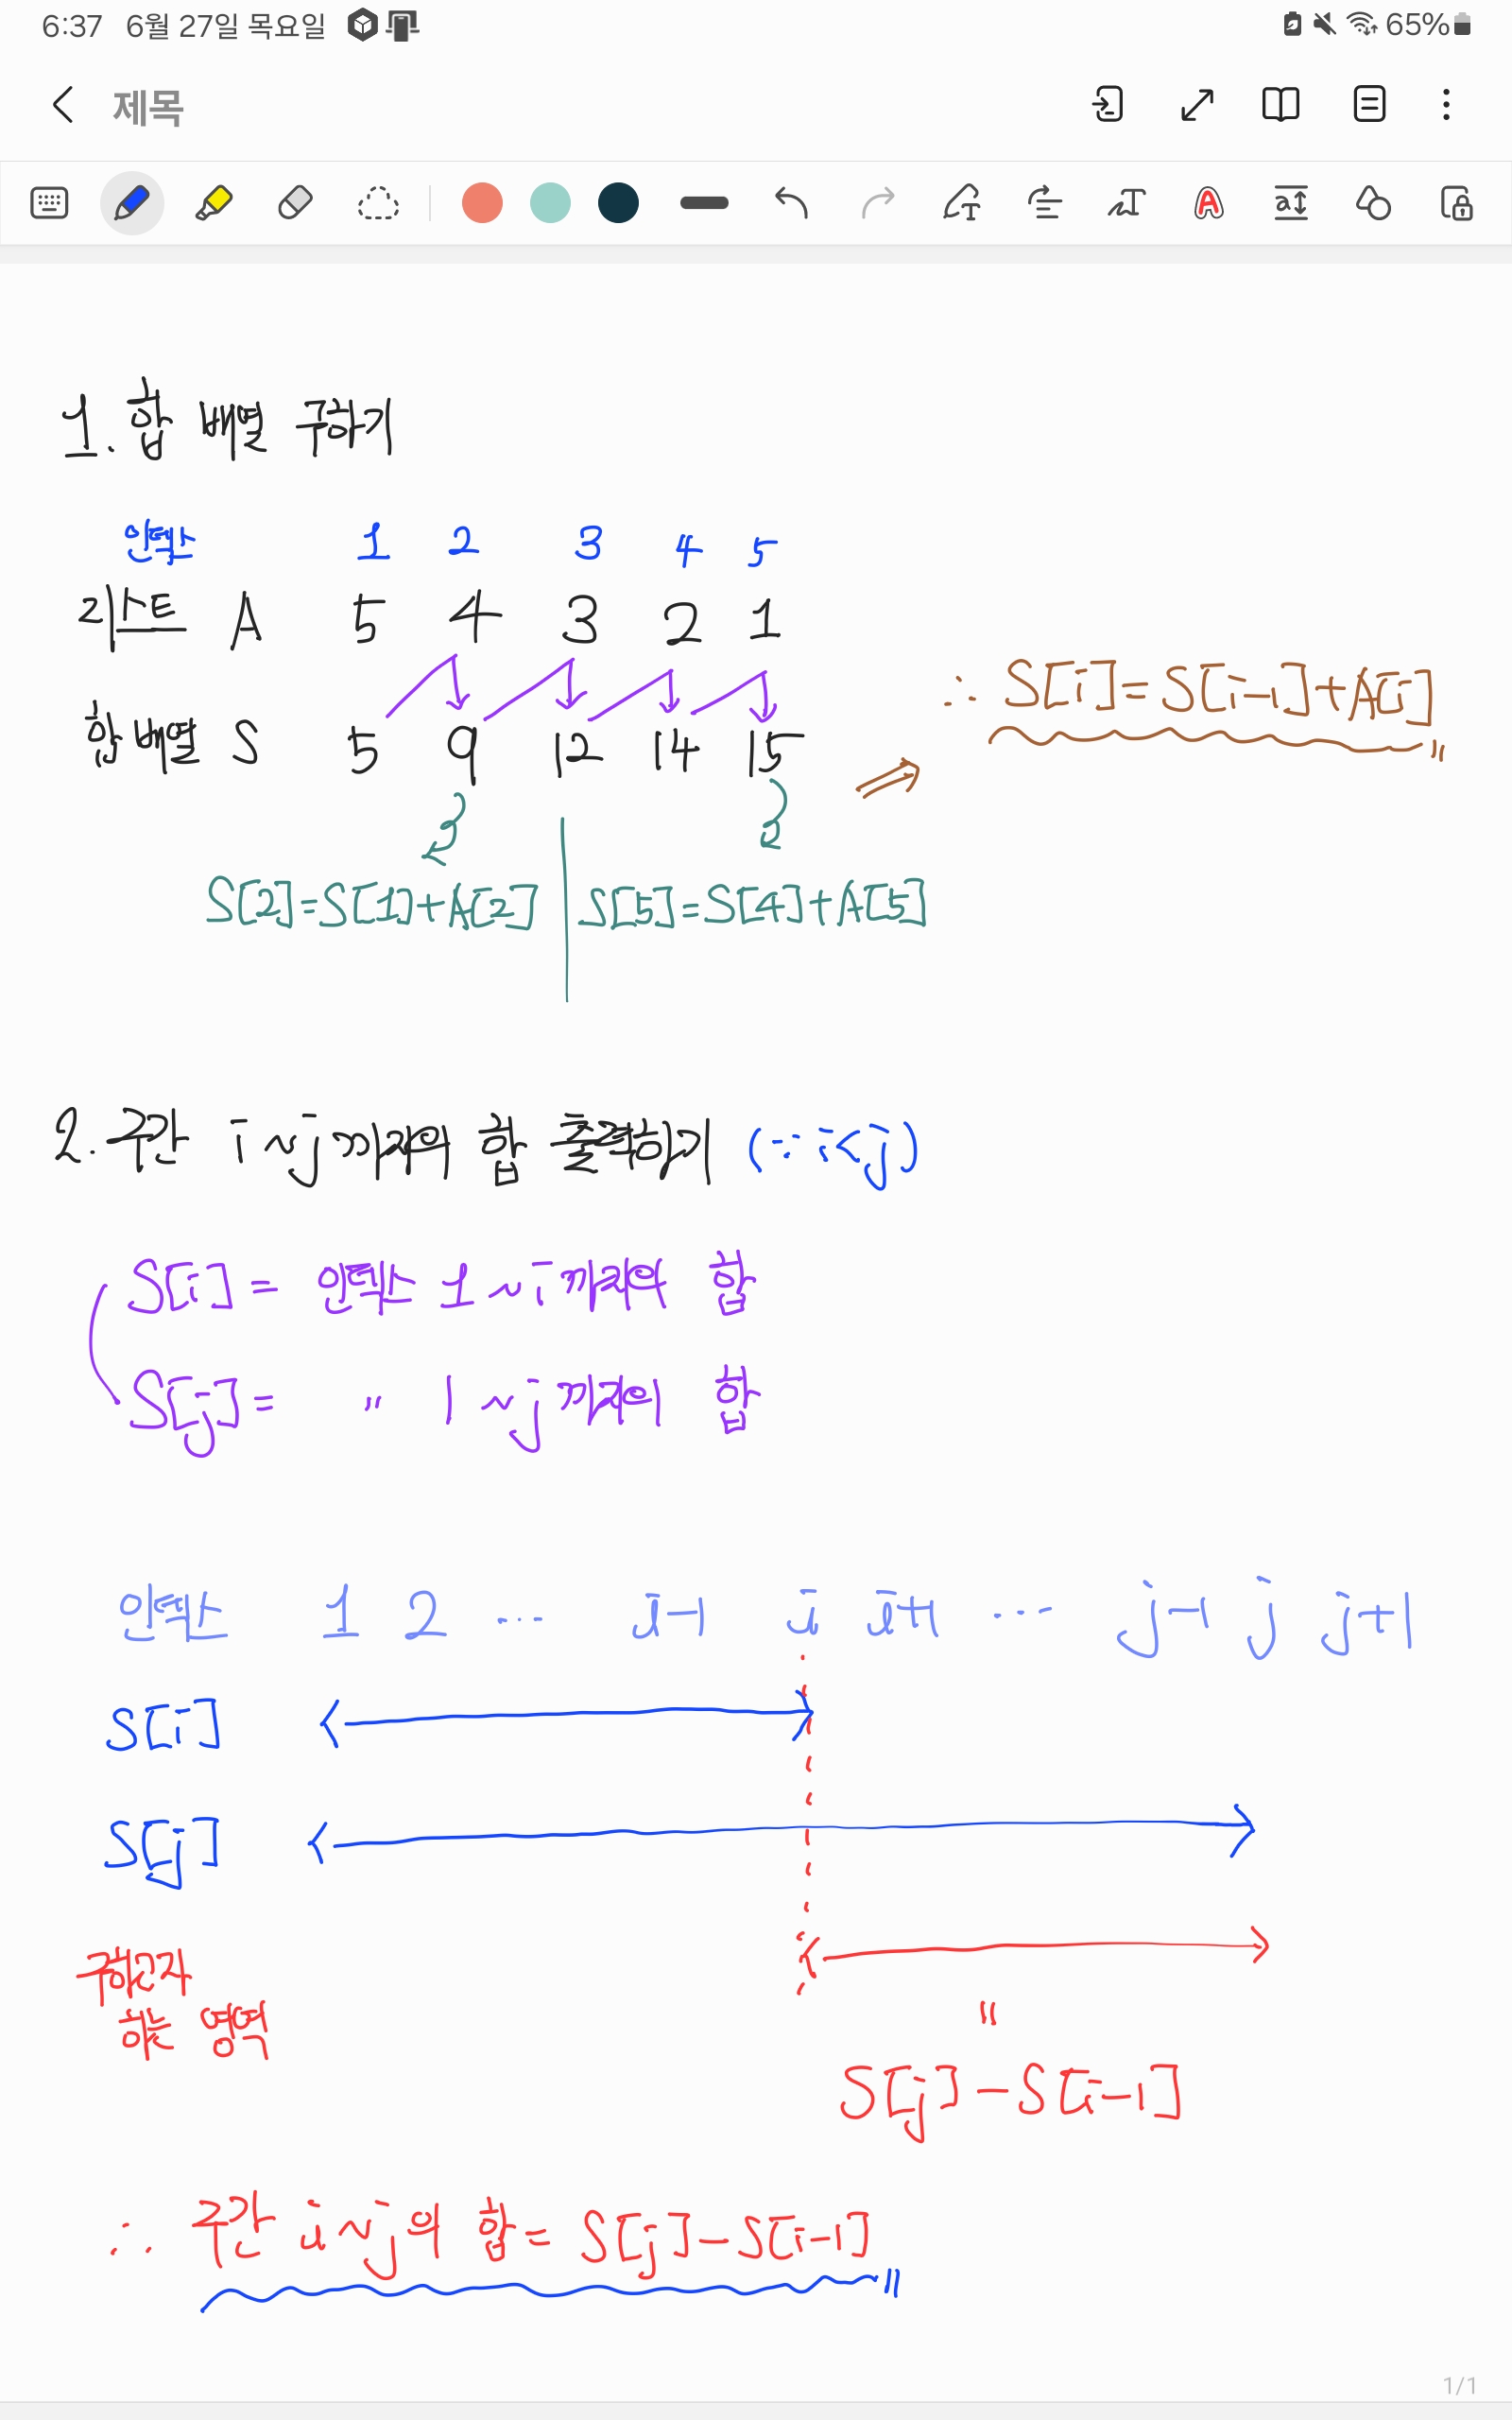 6:37 6월 27일 목요일 65%
제목
1. 합 배열 구하기
인덱스 1 2 3 4 5
리스트 A 5 4 3 2 1
합 배열 S 5 9 12 14 15
∴ S[i]=S[i-1]+A[i]〃
⇒
S[2]=S[1]+A[2] | S[5]=S[4]+A[5]
2. 구간 i~j까지의 합 출력하기 (∵ i<j)
S[i] = 인덱스 1~i까지의 합
S[j] = 〃 1~j까지의 합
인덱스 1 2 ... i-1 i i+1 ... j-1 j j+1
S[i]
S[j]
구하고자
하는 영역
〃
S[j]-S[i-1]
∴ 구간 i~j의 합 = S[j]-S[i-1]〃
1/1